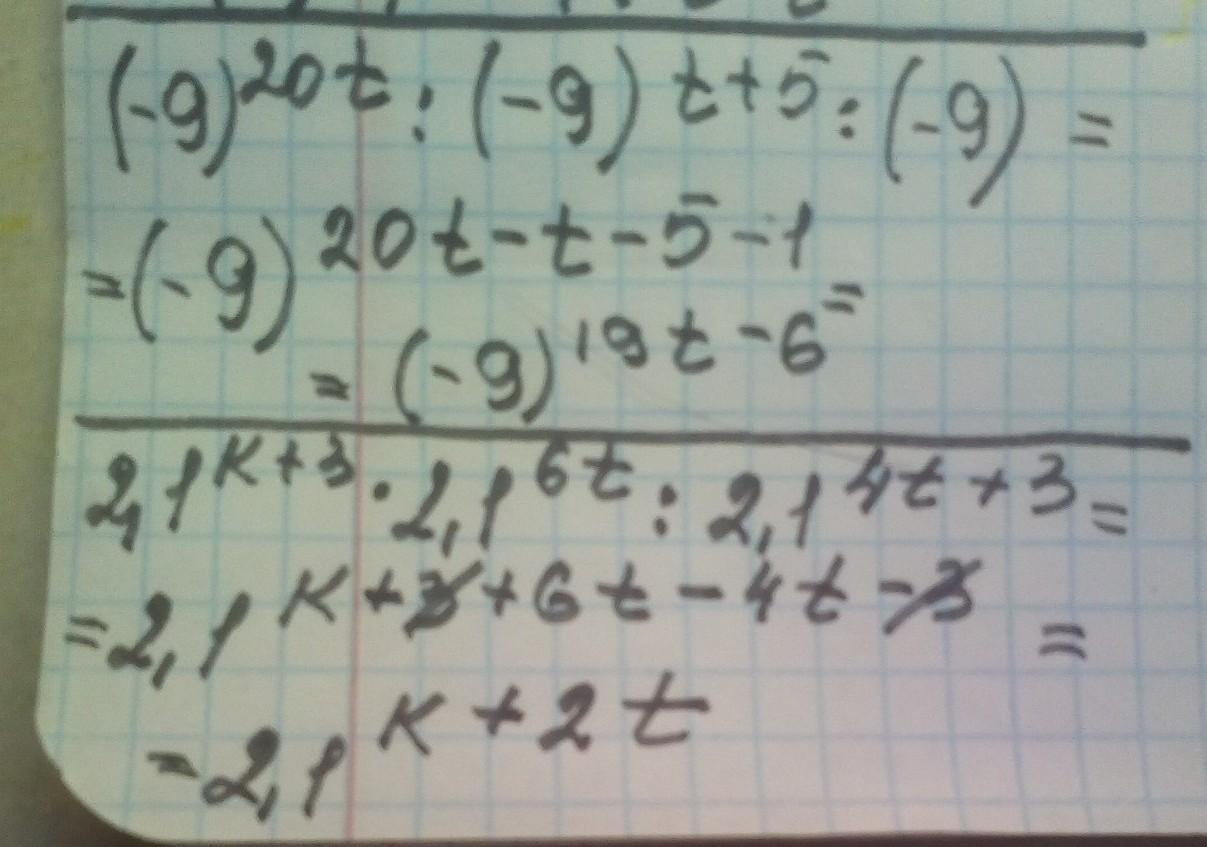 (-9)^{20t} : (-9)^{t+5} : (-9) =
= (-9)^{20t-t-5-1} =
= (-9)^{19t-6}
2,1^{k+3} · 2,1^{6t} : 2,1^{4t+3} =
= 2,1^{k+3+6t-4t-3} =
= 2,1^{k+2t}